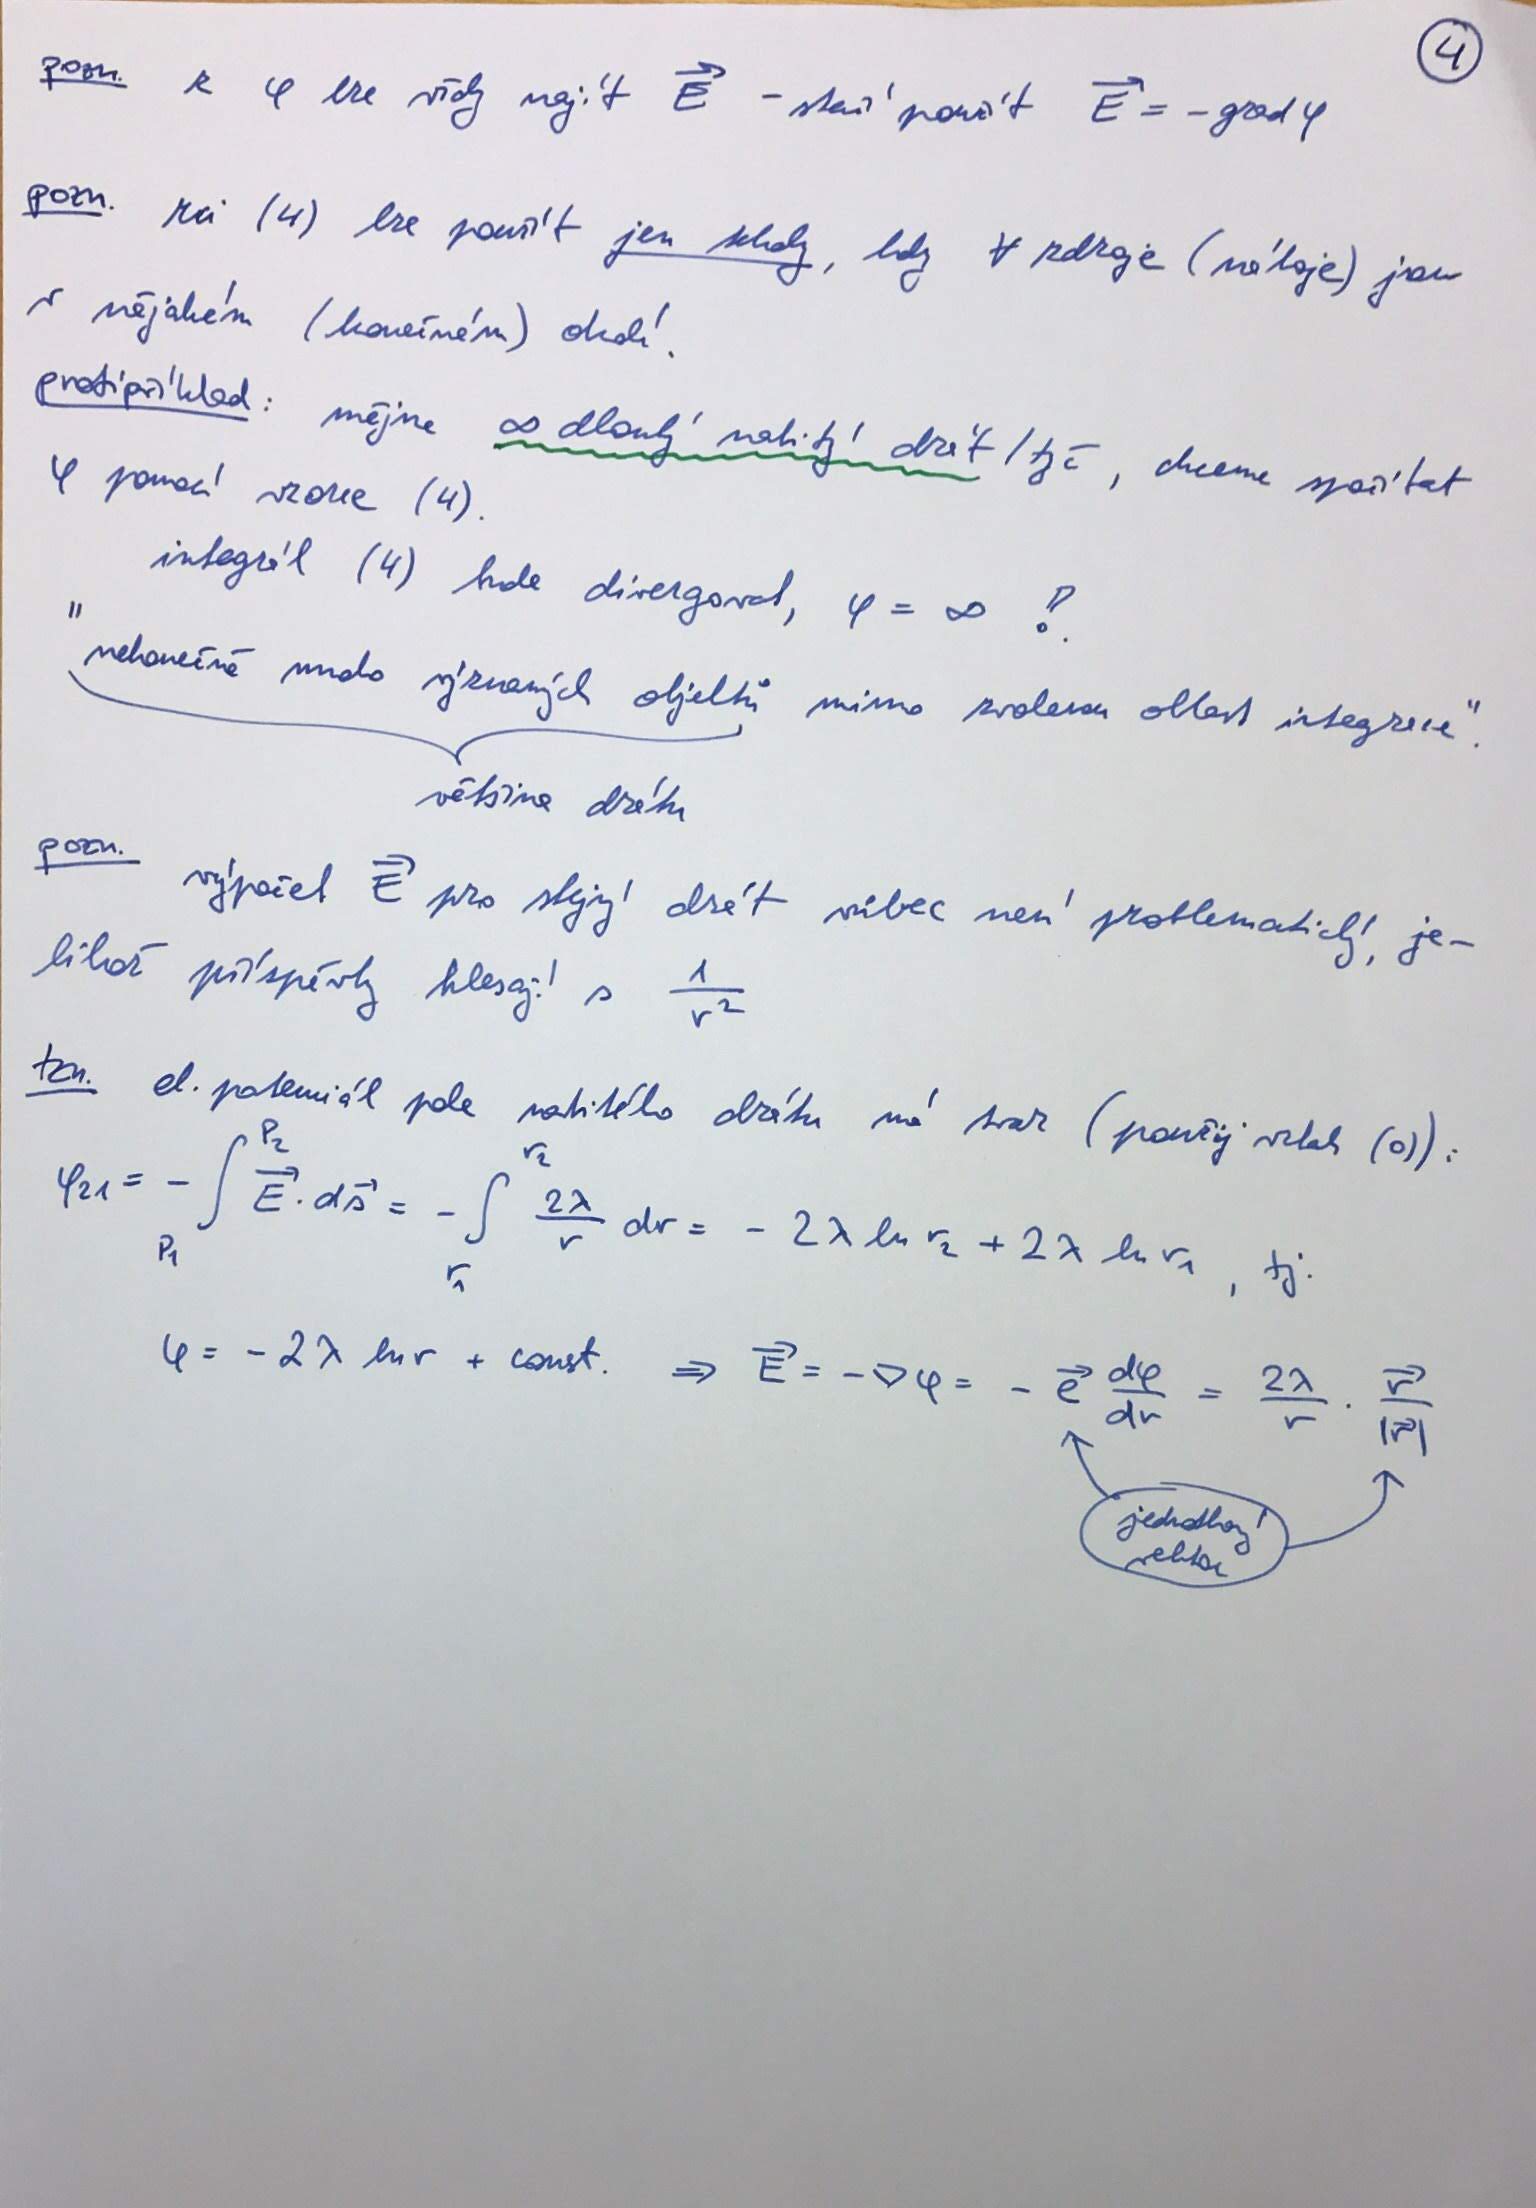 4
pozn. z φ lze vždy najít E⃗ - stačí použít E⃗ = - grad φ
pozn. rci (4) lze použít jen tehdy, kdy ∀ zdroje (náboje) jsou
v nějakém (konečném) okolí.
protipříklad: mějme ∞ dlouhý nabitý drát / tyč, chceme spočítat
φ pomocí vzorce (4).
integrál (4) bude divergovat, φ = ∞ !?
"nekonečně mnoho významných objektů mimo zvolenou oblast integrace".
většina drátu
pozn. výpočet E⃗ pro stejný drát vůbec není problematický, je-
likož příspěvky klesají s 1/r²
tzn. el. potenciál pole nabitého drátu má tvar (použij vztah (0)):
φ₂₁ = - ∫_{P₁}^{P₂} E⃗ · ds⃗ = - ∫_{r₁}^{r₂} 2λ/r dr = - 2λ ln r₂ + 2λ ln r₁ , tj.
φ = - 2λ ln r + const. ⇒ E⃗ = - ∇φ = - e⃗ dφ/dr = 2λ/r · r⃗/|r⃗|
jednotkový
vektor